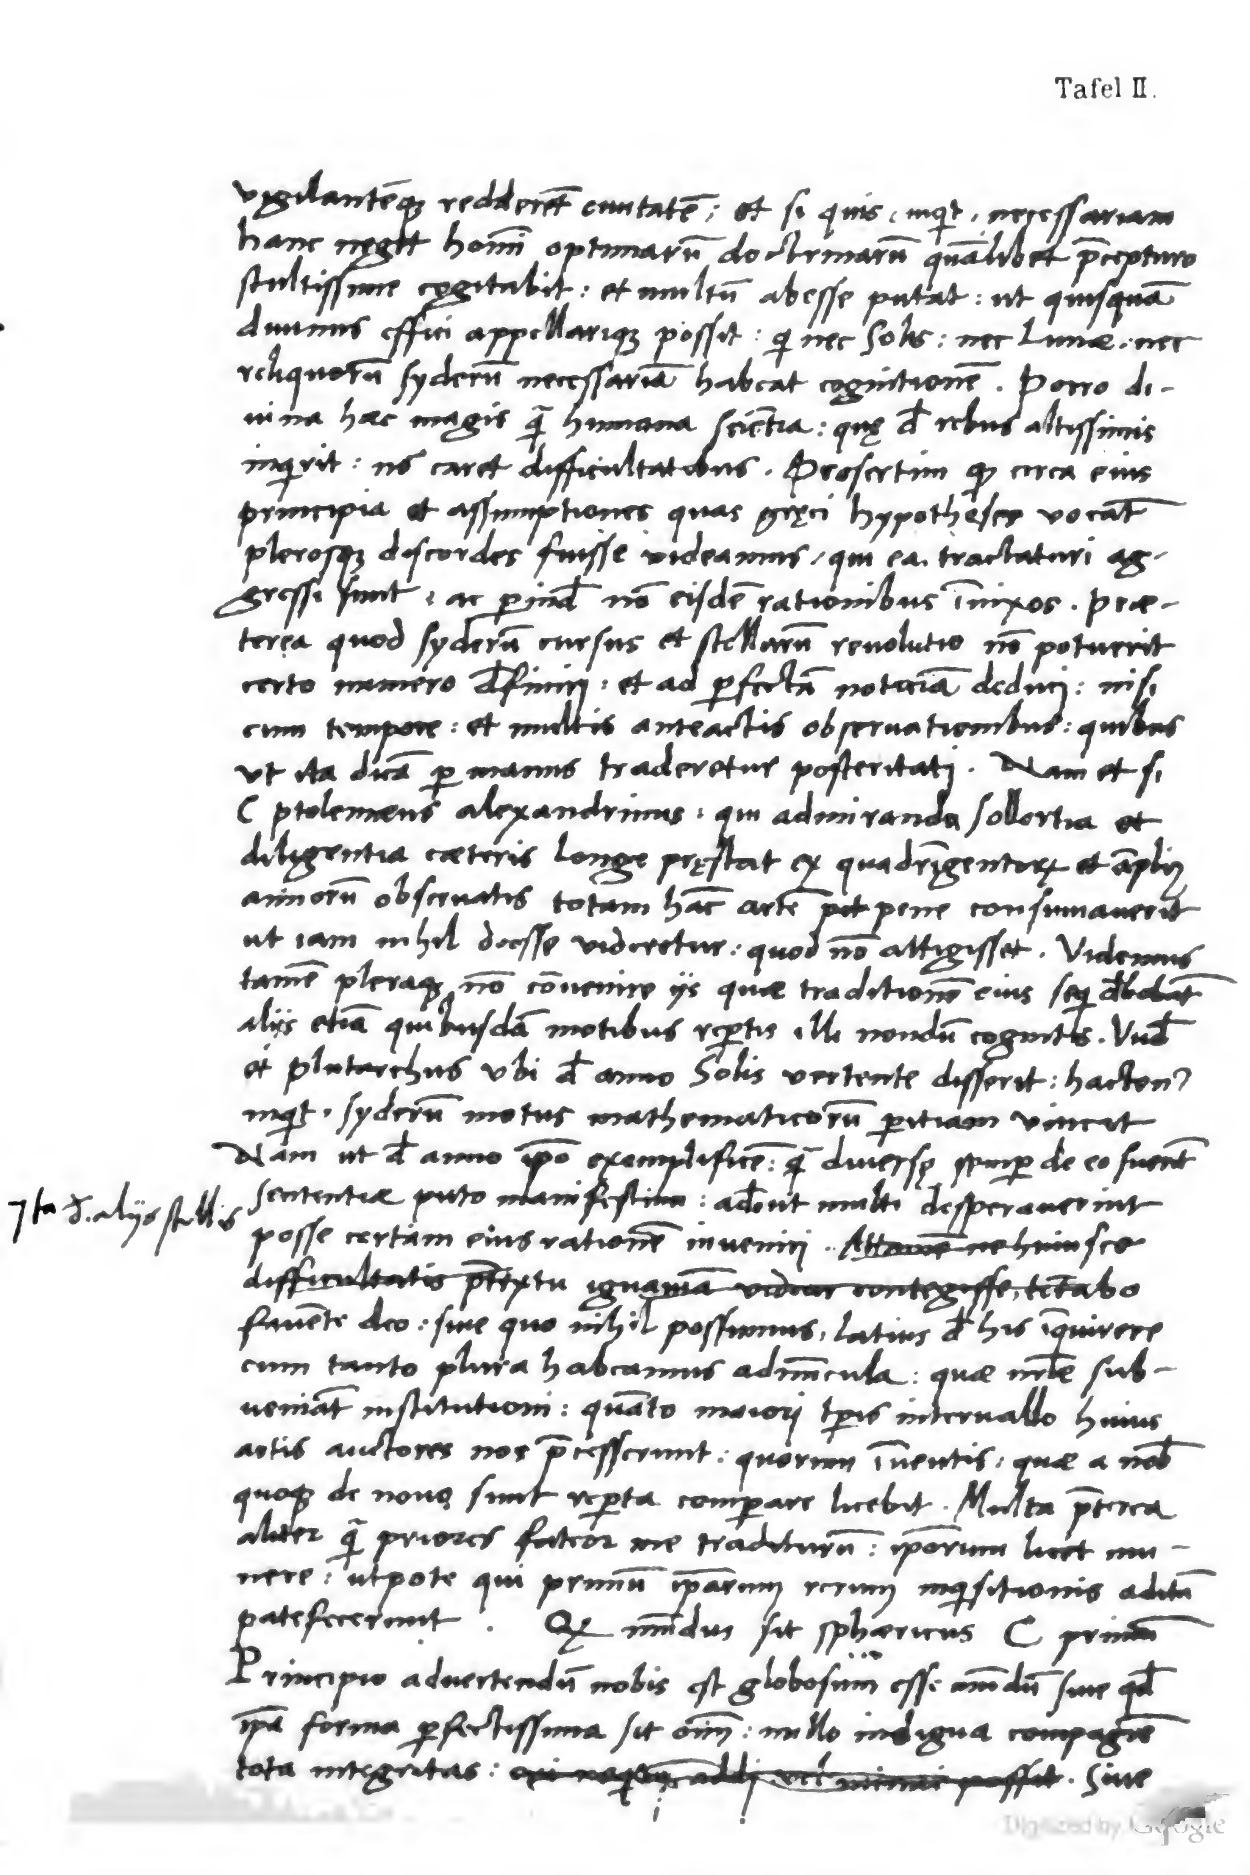 Tafel II.
vigilantēq; redderēt ciuitatē; et si quis, inqt, necessariam
hanc negēt homī optimarū doctrinarū quālibet p̄cepturo
stultissime cogitabit: et multū abesse putat: ut quisquā
diuinus effici appellariq; possit: q nec Solis: nec Lunæ, nec
reliquorū syderū necessariā habeat cognitionē. Porro di-
uina hæc magis q̄ humana sciētia: quę đ rebus altissimis
inqrit: nō caret difficultatibus. Præsertim q circa eius
principia et assumptiones quas gręci hypotheses vocāt
plerosq; discordes fuisse videamus, qui ea tractaturi ag-
gressi sunt, ac ꝑinđ nō eisdē rationibus īnixos. Præ-
terea quod syderū cursus et stellarū reuolutio nō potuerit
certo numero đfiniri: et ad ꝑfectā noticiā deduci: nisi
cum tempore: et multis anteactis obseruationibus: quibus
ut ita dicā ꝑ manus traderetur posteritati. Nam et si
C ptolemæus alexandrinus, qui admiranda sollertia et
diligentia cæteris longe pręstat ex quadrīgentorꝝ et āpliꝰ
annorū obseruatis totam hāc artē pene consumauerit
ut iam nihil deesse videretur: quod nō attigisset. Videmus
tamē pleraq; nō cōuenire ijs quæ traditionē eius seq đbebāt
alijs etiā quibusdā motibus reꝑtis illi nondū cognitis. Vnđ
et plutarchus vbi đ anno Solis vertente disserit: hactenꝰ
inqt, syderū motus mathematicorū ꝑitiam vincit
Nam ut đ anno ip̄o exemplificē: q̄ diuersę semꝑ de eo fuerīt
sententiæ puto manifestum: adeout multi desperauerint
⁊ ita đ alijs stellis
posse certam eius rationē inueniri. Attamē ne huiusce
difficultatis p̄textu ignauiā videar contegisse, tētabo
fauēte deo: sine quo nihil possumus, latius đ his īquirere
cum tanto plura habeamus admīcula: quæ nr̄æ sub-
ueniāt institutioni: quāto maiori tꝑis interuallo huius
artis auctores nos p̄cesserunt: quorum īuentis, quæ a nob̄
quoq; de nouo sunt reꝑta comꝑare licebit. Multa p̄terea
aliter q̄ priores fateor me traditurū: ip̄orum licet mu-
nere: utpote qui primū ip̄arum rerum inqsitionis aditū
patefecerunt. Qꝙ mūdus sit sphæricus C primū
Principio aduertendū nobis est globosum esse mūdū siue qđ
ip̄a forma ꝑfectissima sit oīm: nullo indigua compagie
tota integritas: cui neq; addi vel minui possit. Siue
Digitized by Google